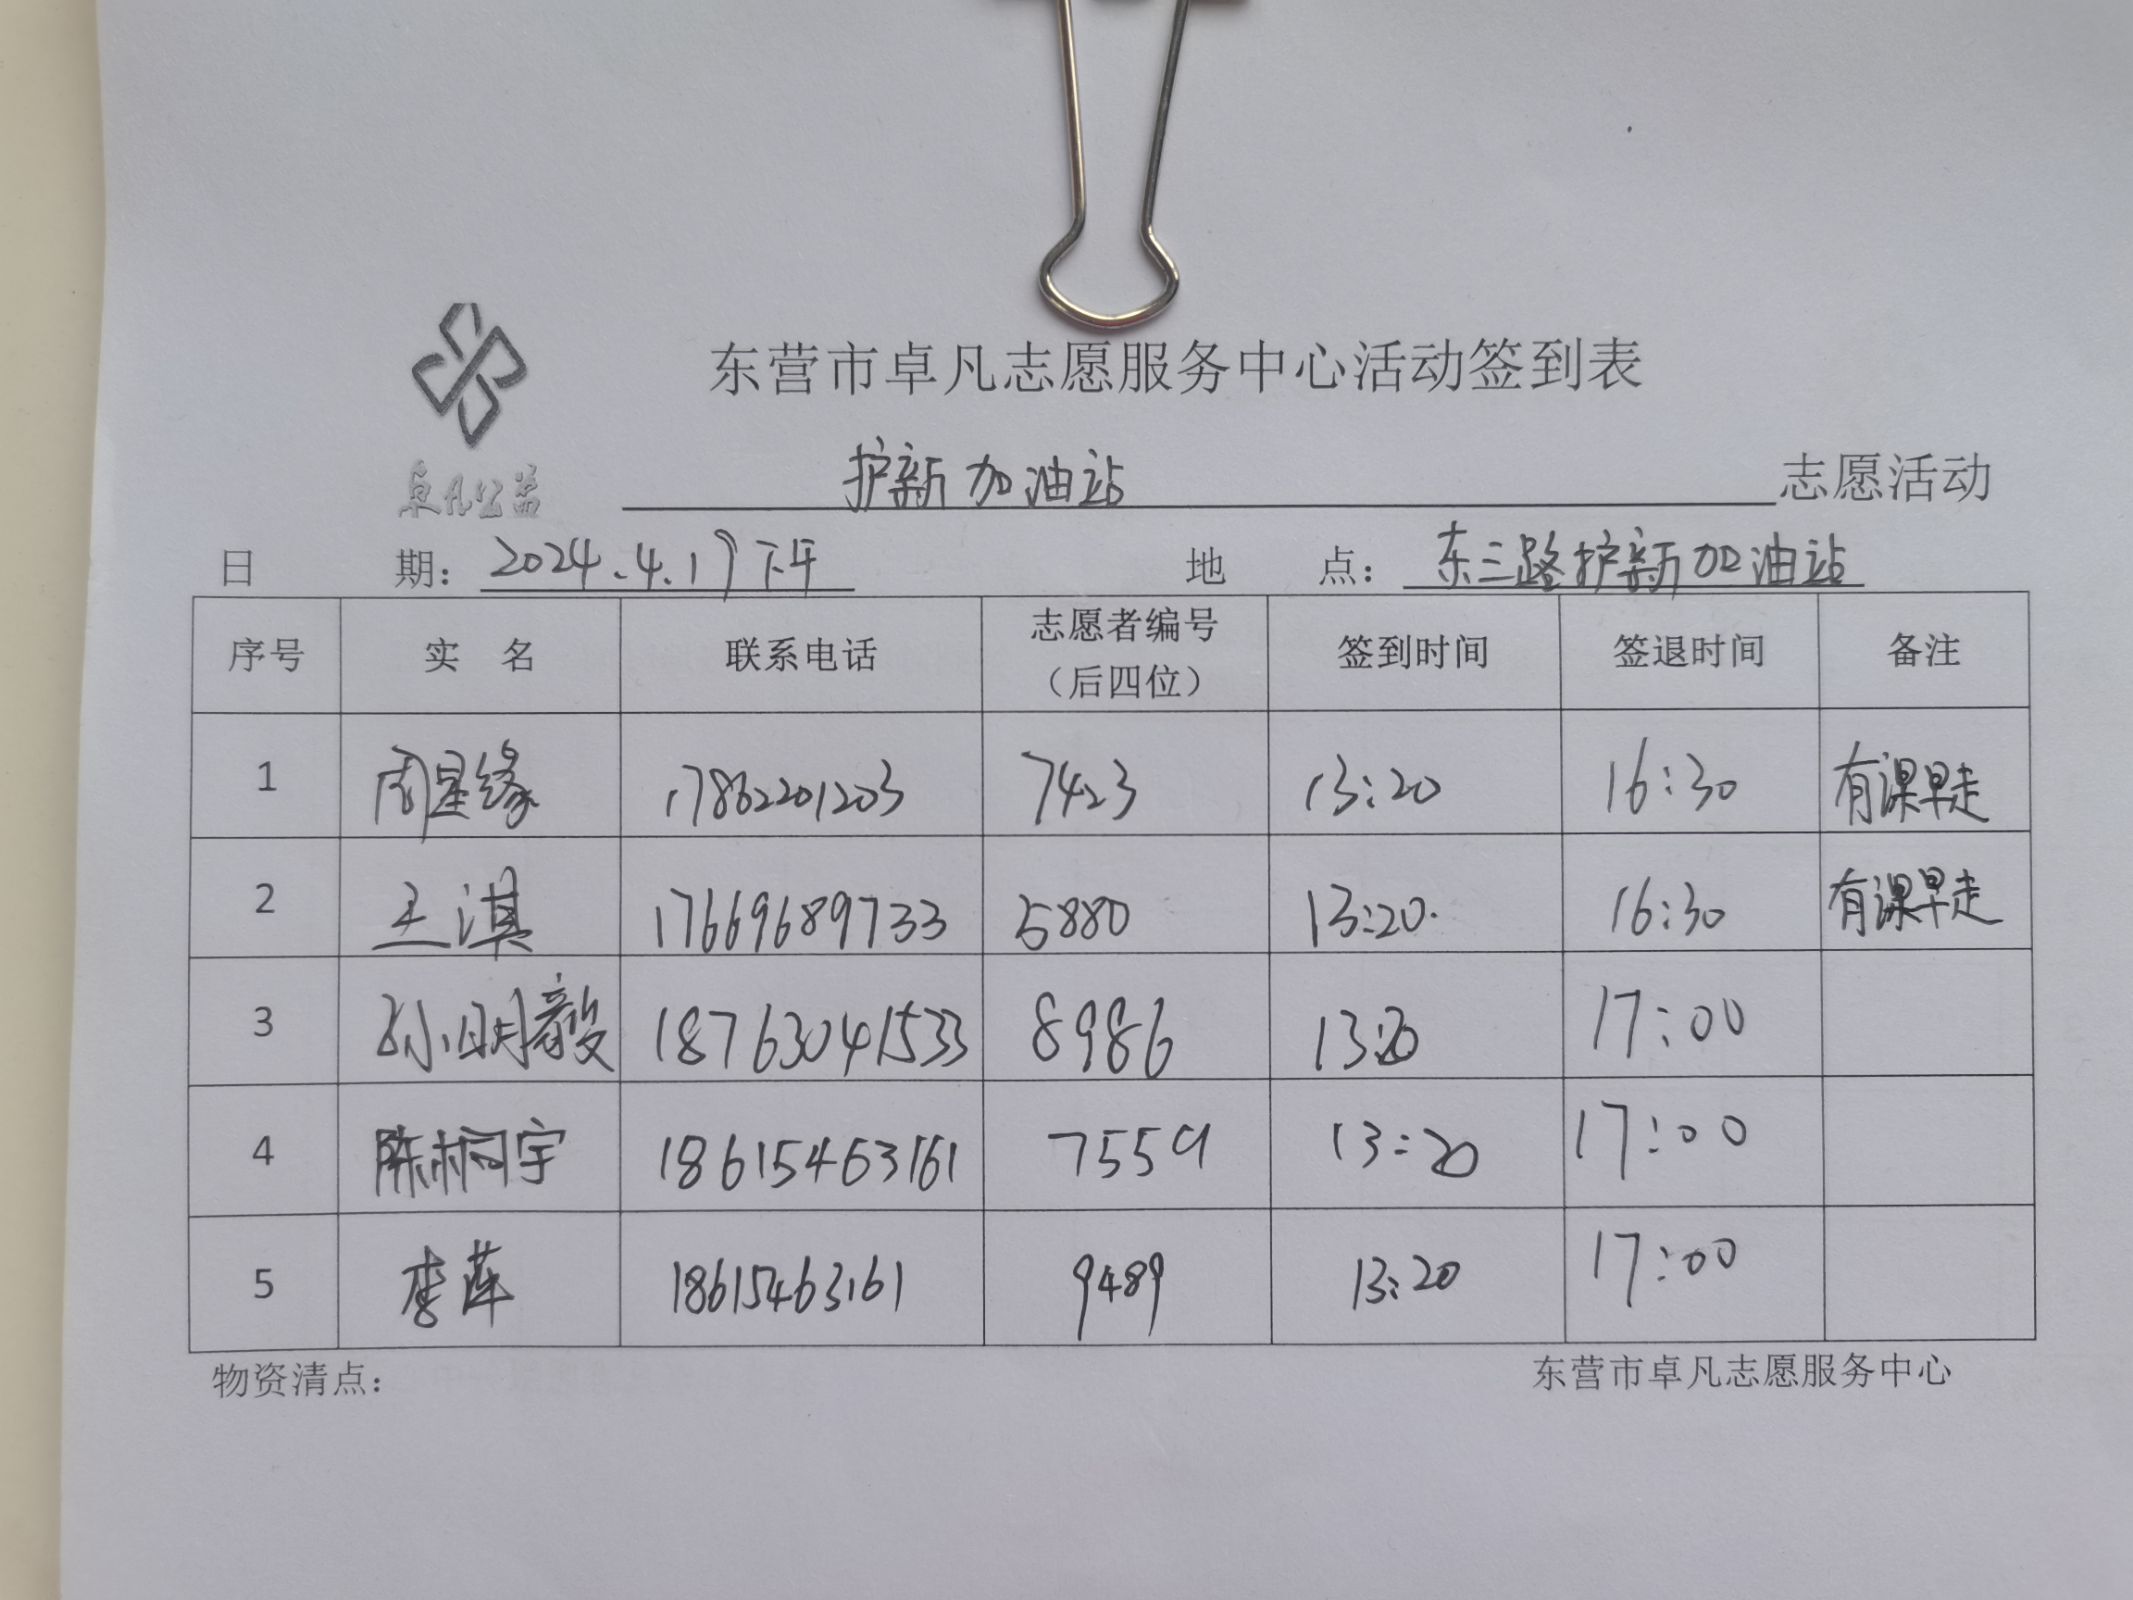 东营市卓凡志愿服务中心活动签到表
卓凡公益
护新加油站 志愿活动
日 期： 2024.4.19下午 地 点： 东三路护新加油站
序号 实 名 联系电话 志愿者编号（后四位） 签到时间 签退时间 备注
1 周星缘 17862201203 7423 13:20 16:30 有课早走
2 王淇 17669689733 5880 13:20. 16:30 有课早走
3 孙明毅 18763041533 8986 13:20 17:00
4 陈桐宇 18615463161 7559 13:20 17:00
5 李萍 18615463161 9489 13:20 17:00
物资清点： 东营市卓凡志愿服务中心